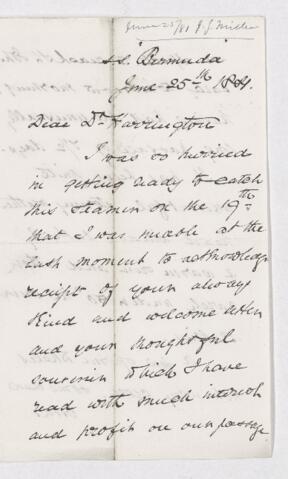 June 25/81 J. G. Miller
S.S. "Bermuda"
June 25th 1881.
Dear Dr. Farrington
I was so hurried
in getting ready to catch
this steamer on the 19th
that I was unable at the
last moment to acknowledge
receipt of your always
kind and welcome letter
and your thoughtful
souvenir which I have
read with much interest
and profit on our passage